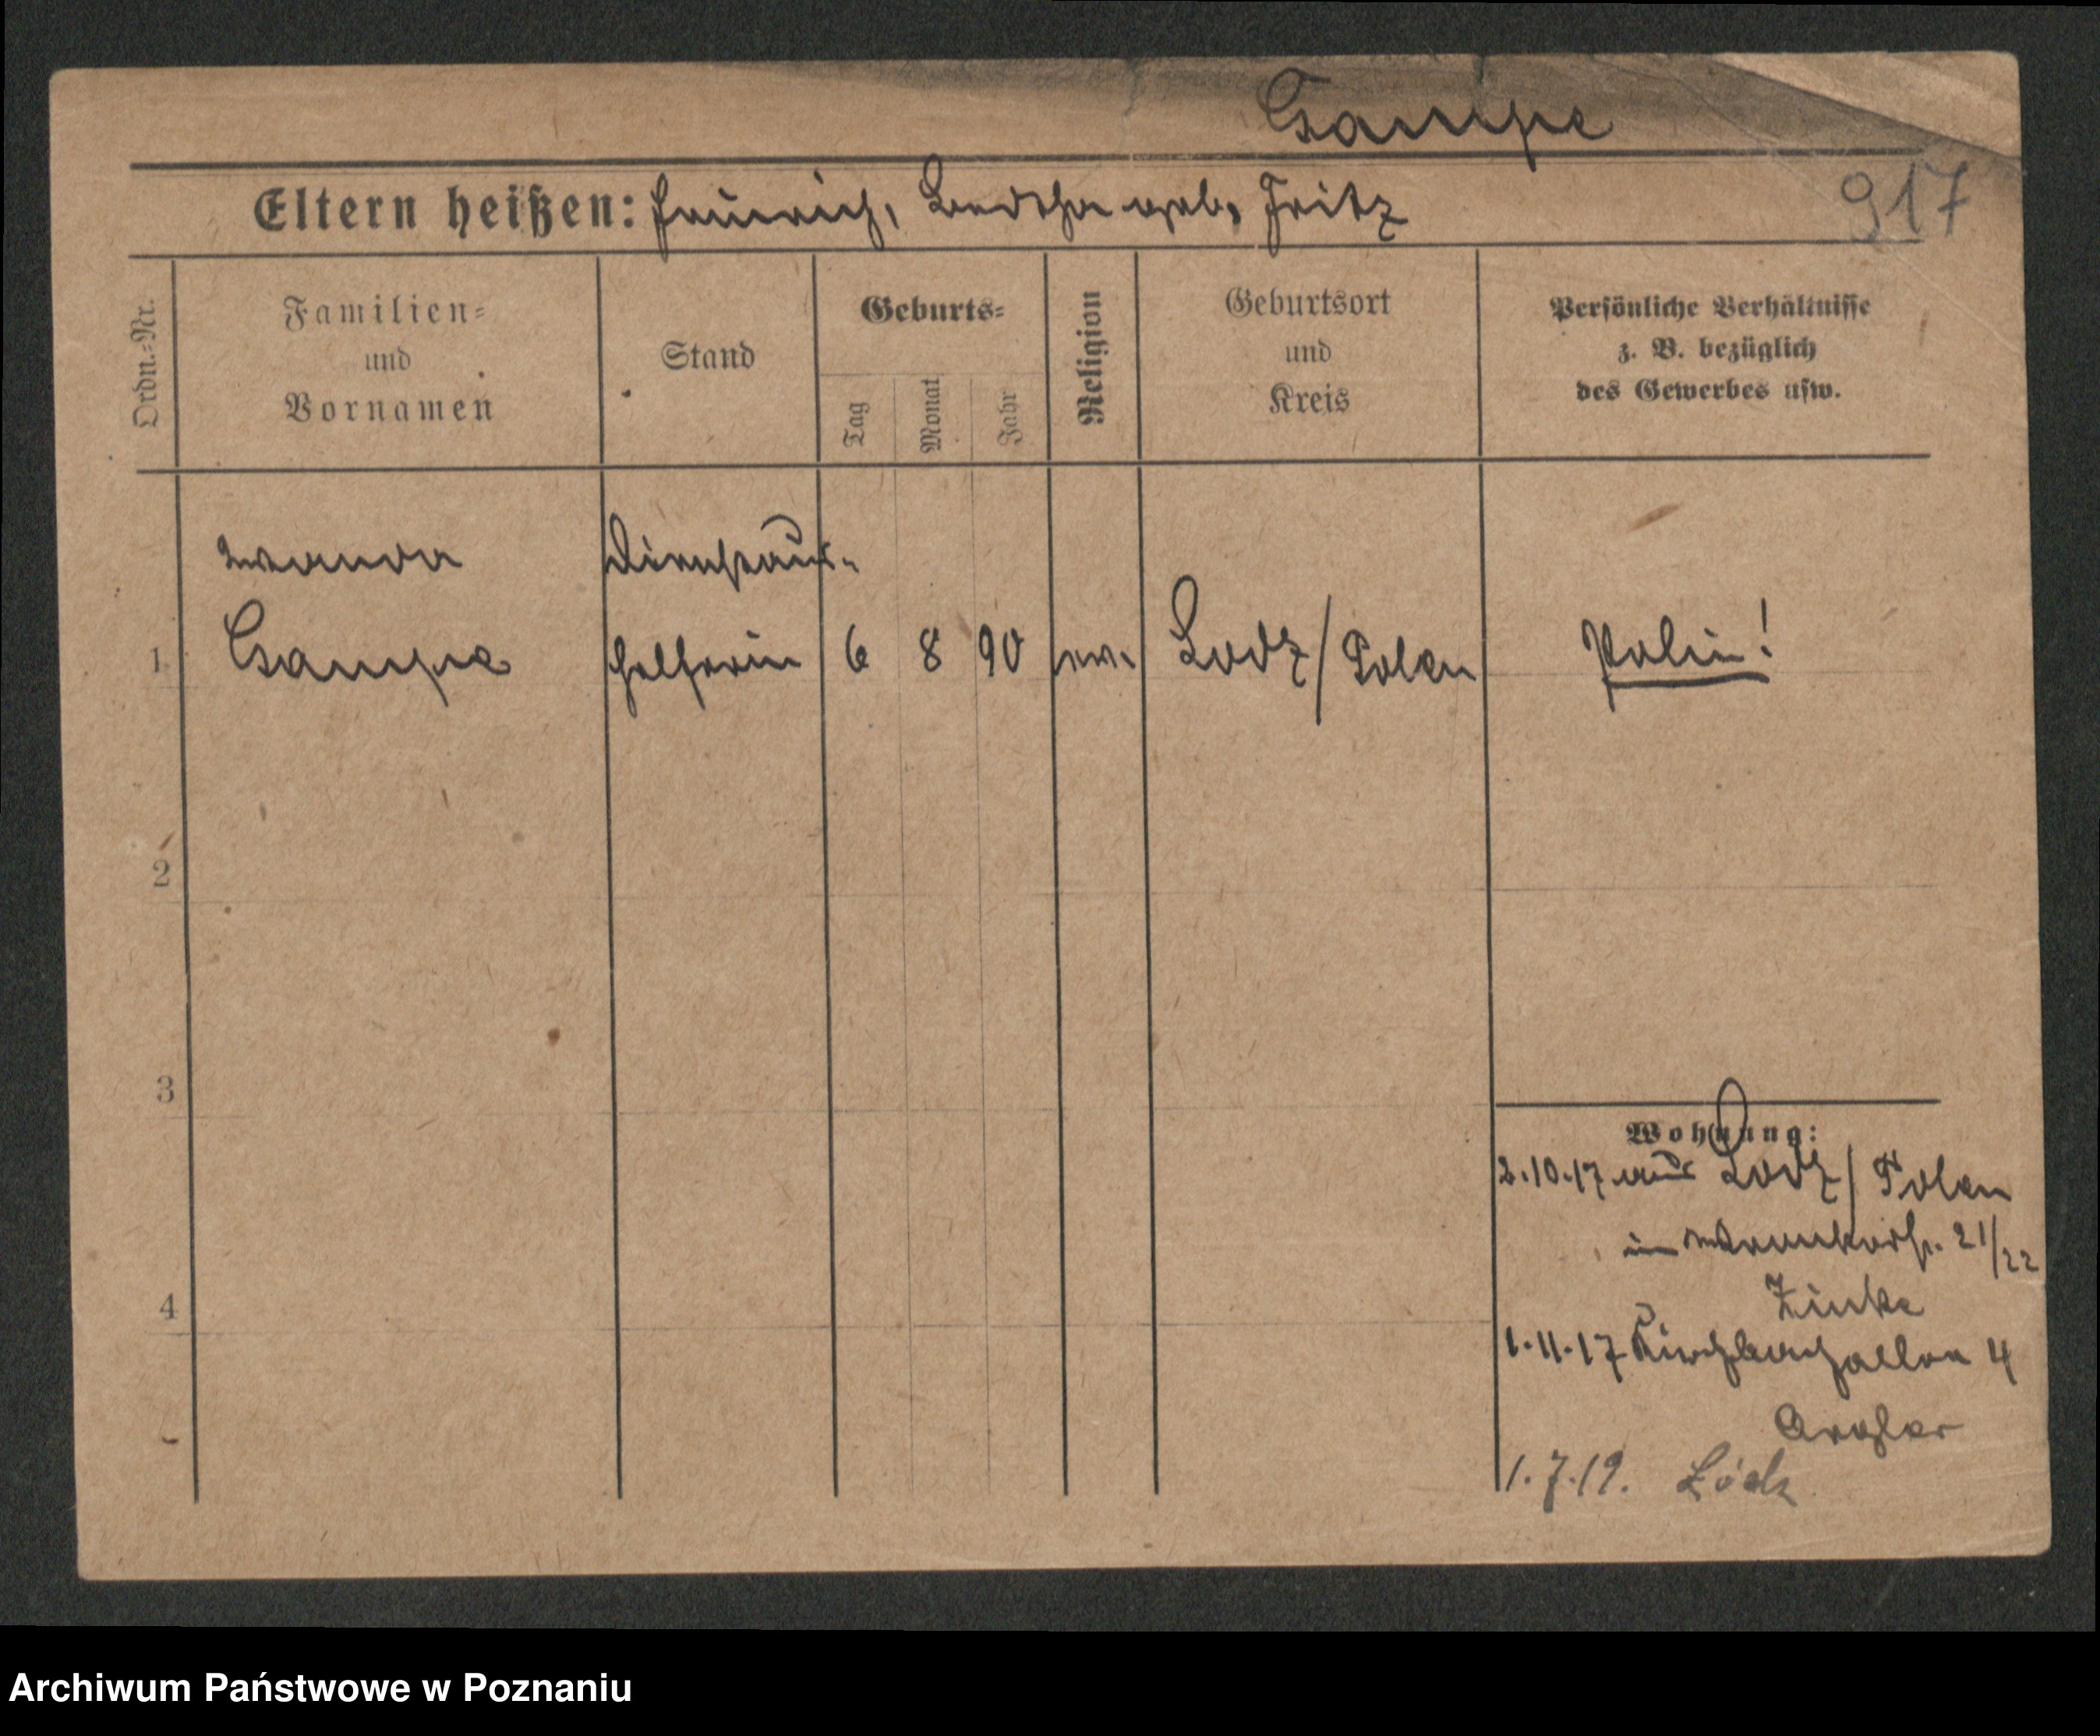 Campe
917
Eltern heißen: Heinrich, Bertha geb. Fritz
Ordn.-Nr.
Familien-
und
Vornamen
Stand
Geburts-
Tag
Monat
Jahr
Religion
Geburtsort
und
Kreis
Persönliche Verhältnisse
z. B. bezüglich
des Gewerbes usw.
Wanda
Dienstaus-
1 Campe helferin 6 8 90 ev. Lodz/Polen Polin!
2
3
Wohnung:
2.10.17 aus Lodz/Polen
in 21/22
4
Zinke
1.11.17 Kirchbachallee 4
1.7.19. Łódź
Archiwum Państwowe w Poznaniu